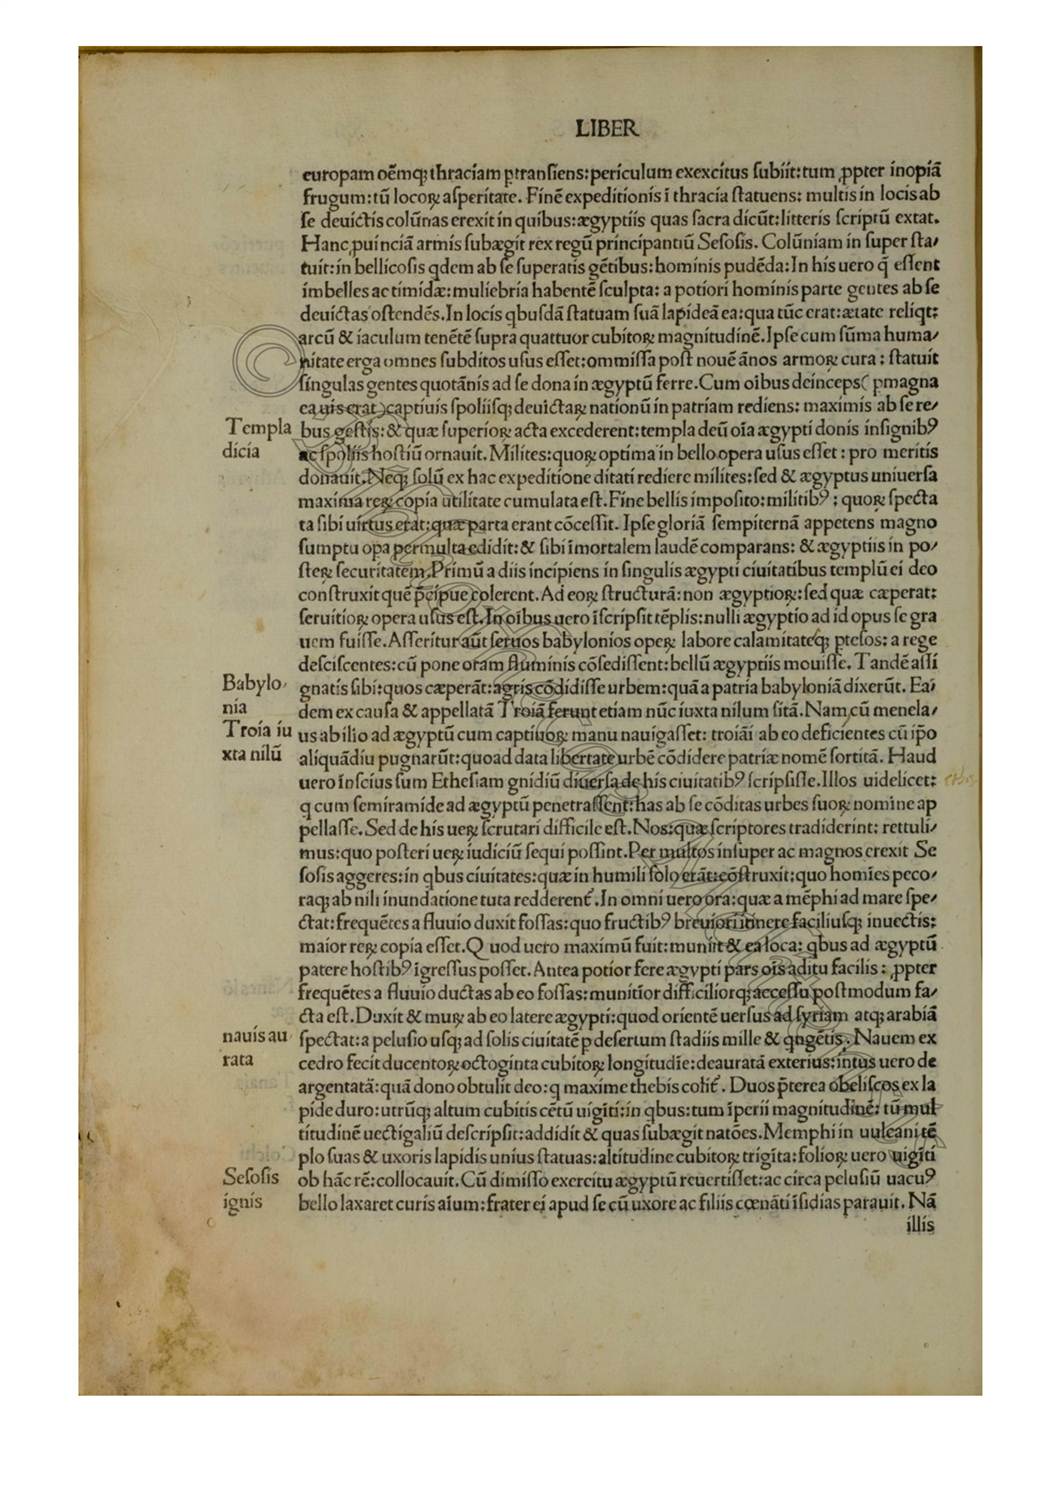 LIBER
europam oēmq; thraciam ꝑtransiens: periculum exexcitus subiit: tum ꝓpter inopiā
frugum: tū locoꝝ asperitate. Finē expeditionis ī thracia statuens: multis in locis ab
se deuictis colūnas erexit in quibus: ægyptiis quas sacra dicūt: litteris scriptū extat.
Hanc ꝓuinciā armis subægit rex regū principantiū Sesosis. Colūniam in super sta/
tuit: in bellicosis qdem ab se superatis gētibus: hominis pudēda: In his uero q̄ essent
imbelles ac timidæ: muliebria habentē sculpta: a potiori hominis parte gentes ab se
deuictas ostendēs. In locis qbusdā statuam suā lapideā ea: qua tūc erat: ætate reliqt:
arcū & iaculum tenētē supra quattuor cubitoꝝ magnitudinē. Ipse cum sūma huma/
nitate erga omnes subditos usus esset: ommissa post nouē ānos armoꝝ cura: statuit
singulas gentes quotānis ad se dona in ægyptū ferre. Cum oībus deinceps( pmagna
ea uis erat )captiuis spoliisq; deuictaꝝ nationū in patriam rediens: maximis ab se re/
Templa
dicia
bus gestis: & quæ superioꝝ acta excederent: templa deū oīa ægypti donis insignibꝰ
ac spoliis hostiū ornauit. Milites: quoꝝ optima in bello opera usus esset: pro meritis
donauit. Neq; solū ex hac expeditione ditati rediere milites: sed & ægyptus uniuersa
maxima reꝝ copia utilitate cumulata est. Fine bellis imposito: militibꝰ: quoꝝ specta
ta sibi uirtus erat: quæ parta erant cōcessit. Ipse gloriā sempiternā appetens magno
sumptu opa permulta edidit: & sibi īmortalem laudē comparans: & ægyptiis in po/
steꝝ securitatem. Primū a diis incipiens in singulis ægypti ciuitatibus templū ei deo
construxit quē p̄cipue colerent. Ad eoꝝ structurā: non ægyptioꝝ: sed quæ cæperat:
seruitioꝝ opera usus est. In oībus uero īscripsit tēplis: nulli ægyptio ad id opus se gra
uem fuisse. Asseritur aūt seruos babylonios opeꝝ labore calamitateq; ptesos: a rege
desciscentes: cū pone oram fluminis cōsedissent: bellū ægyptiis mouisse. Tandē assi
Babylo/
nia
gnatis sibi: quos cæperāt: agris cōdidisse urbem: quā a patria babyloniā dixerūt. Ea/
dem ex causa & appellatā Troiā ferunt etiam nūc iuxta nilum sitā. Nam cū menela/
Troia iu
xta nilū
us ab ilio ad ægyptū cum captiuoꝝ manu nauigasset: troiāi ab eo deficientes cū ip̄o
aliquādiu pugnarūt: quoad data libertate urbē cōdidere patriæ nomē sortitā. Haud
uero īnscius sum Ethesiam gnidiū diuersa de his ciuitatibꝰ scripsisse. Illos uidelicet:
q cum semiramide ad ægyptū penetrassent: has ab se cōditas urbes suoꝝ nomine ap
pellasse. Sed de his ueꝝ scrutari difficile est. Nos: quæ scriptores tradiderint: rettuli/
mus: quo posteri ueꝝ iudiciū sequi possint. Per multos insuper ac magnos erexit Se
sosis aggeres: in qbus ciuitates: quæ in humili solo erāt: cōstruxit: quo homīes peco/
raq; ab nili inundatione tuta redderent̄. In omni uero ora: quæ a mēphi ad mare spe/
ctat: frequētes a fluuio duxit fossas: quo fructibꝰ breuiori itinere faciliusq; inuectis:
maior reꝝ copia esset. Quod uero maximū fuit: muniit & ea loca: qbus ad ægyptū
patere hostibꝰ īgressus posset. Antea potior fere ægypti pars oīs aditu facilis: ꝓpter
frequētes a fluuio ductas ab eo fossas: munitior difficiliorq; accessu postmodum fa/
cta est. Duxit & muꝝ ab eo latere ægypti: quod orientē uersus ad syriam atq; arabiā
nauis au
rata
spectat: a pelusio usq; ad solis ciuitatē p desertum stadiis mille & qngētis. Nauem ex
cedro fecit ducentoꝝ octoginta cubitoꝝ longitudīe: deauratā exterius: intus uero de
argentatā: quā dono obtulit deo: q maxime thebis colit̄. Duos p̄terea obeliscos ex la
pide duro: utrūq; altum cubitis cētū uigīti: in qbus: tum īperii magnitudinē: tū mul
titudinē uectigaliū descripsit: addidit & quas subægit natōes. Memphi in uulcani tē
plo suas & uxoris lapidis unius statuas: altitudine cubitoꝝ trigīta: folioꝝ uero uigīti
Sesosis
ignis
ob hāc rē: collocauit. Cū dimisso exercitu ægyptū reuertisset: ac circa pelusiū uacuꝰ
bello laxaret curis aīum: frater ei apud se cū uxore ac filiis cœnāti īsidias parauit. Nā
illis